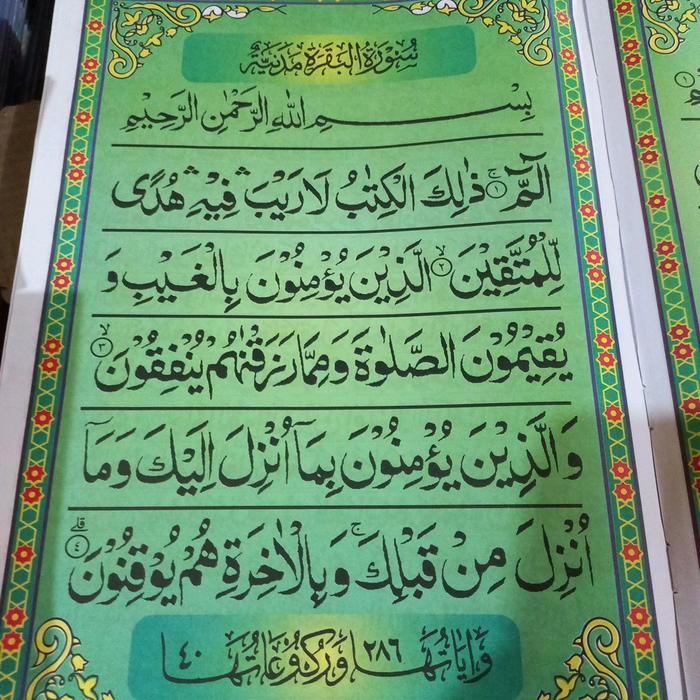 سُوْرَةُ الْبَقَرَةِ مَدَنِيَّةٌ
بِسْمِ اللهِ الرَّحْمٰنِ الرَّحِيْمِ
الٓمّٓ ۚ ﴿١﴾ ذٰلِكَ الْكِتٰبُ لَا رَيْبَ ۛ فِيْهِ ۛ هُدًى
لِّلْمُتَّقِيْنَ ۙ ﴿٢﴾ الَّذِيْنَ يُؤْمِنُوْنَ بِالْغَيْبِ وَ
يُقِيْمُوْنَ الصَّلٰوةَ وَمِمَّا رَزَقْنٰهُمْ يُنْفِقُوْنَ ۙ ﴿٣﴾
وَالَّذِيْنَ يُؤْمِنُوْنَ بِمَآ اُنْزِلَ اِلَيْكَ وَمَآ
اُنْزِلَ مِنْ قَبْلِكَ ۚ وَبِالْاٰخِرَةِ هُمْ يُوْقِنُوْنَ ؕ ﴿٤﴾
وَاٰيَاتُهَا ٢٨٦ وَرُكُوْعَاتُهَا ٤٠